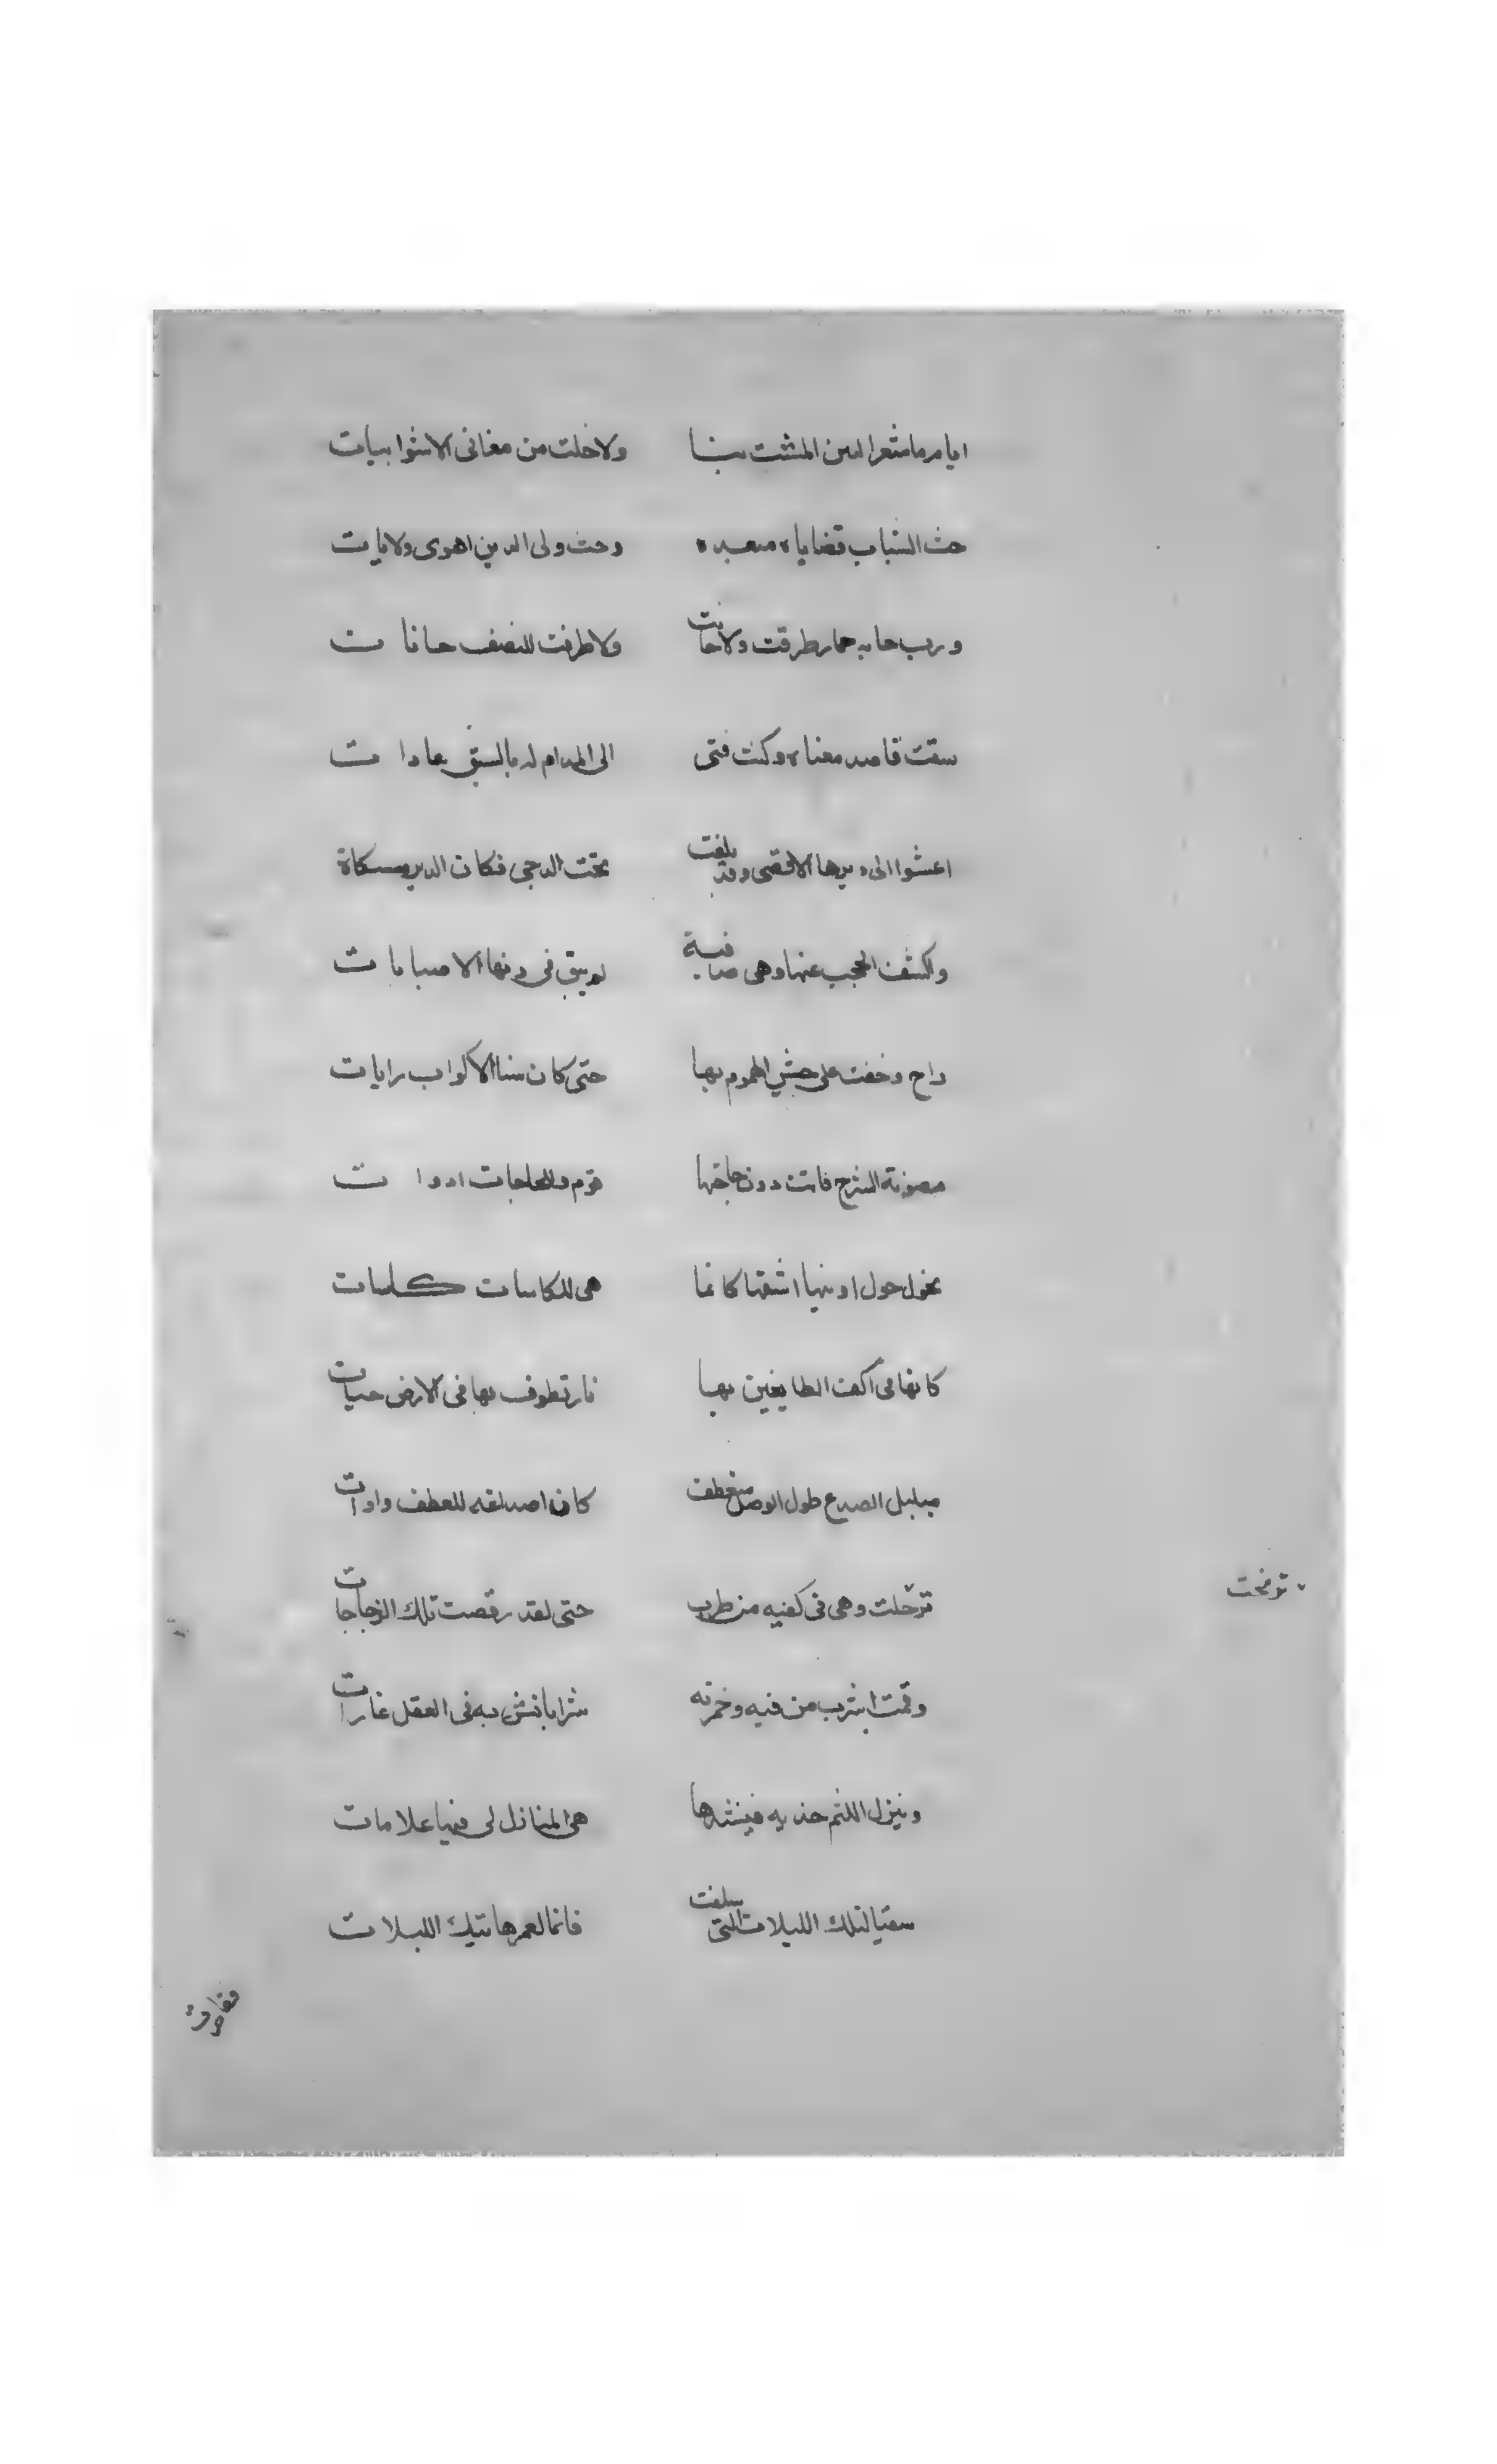 ايام ما شعر البين المشت بنا ولا خلت من مغاني الانس ابيات
حيث الشباب قضاياه منفذه وحيث ولى الذين اهوى ولايات
ورب حانه خمار طرقت ولا حانت ولا طرقت للقصف حانات
سبقت قاصد مغناه وكنت فتى الى المدام له بالسبق عادات
اعشوا الى ديرها الاقصى وقد بلغت تحت الدجى فكان الدير مشكاة
واكشف الحجب عنها وهى صافية لم يبق في دنها الا صبابات
راح زحفت على جيش الهموم بها حتى كان سنا الاكواب رايات
مصونة السرح فاتت دون حاجتها قوم وللحاجات ادوات
تجول حول اوانيها اشعتها كانما هى للكاسات كاسات
كانها فى اكف الطايفين بها نار تطوف بها فى الارض حيات
مبلبل الصدغ طول الوصل منعطف كان اصداغه للعطف واوات
ترحلت وهى فى كفيه من طرب حتى لقد رقصت تلك الزجاجات
ترنحت
وقمت اشرب من فيه وخمرته شربا تشن به فى العقل غارات
وينزل اللثم خديه فينشدها هى المنازل لى فيها علامات
سقيا لتلك الليلات التى سلفت فانما العمر هاتيك الليلات